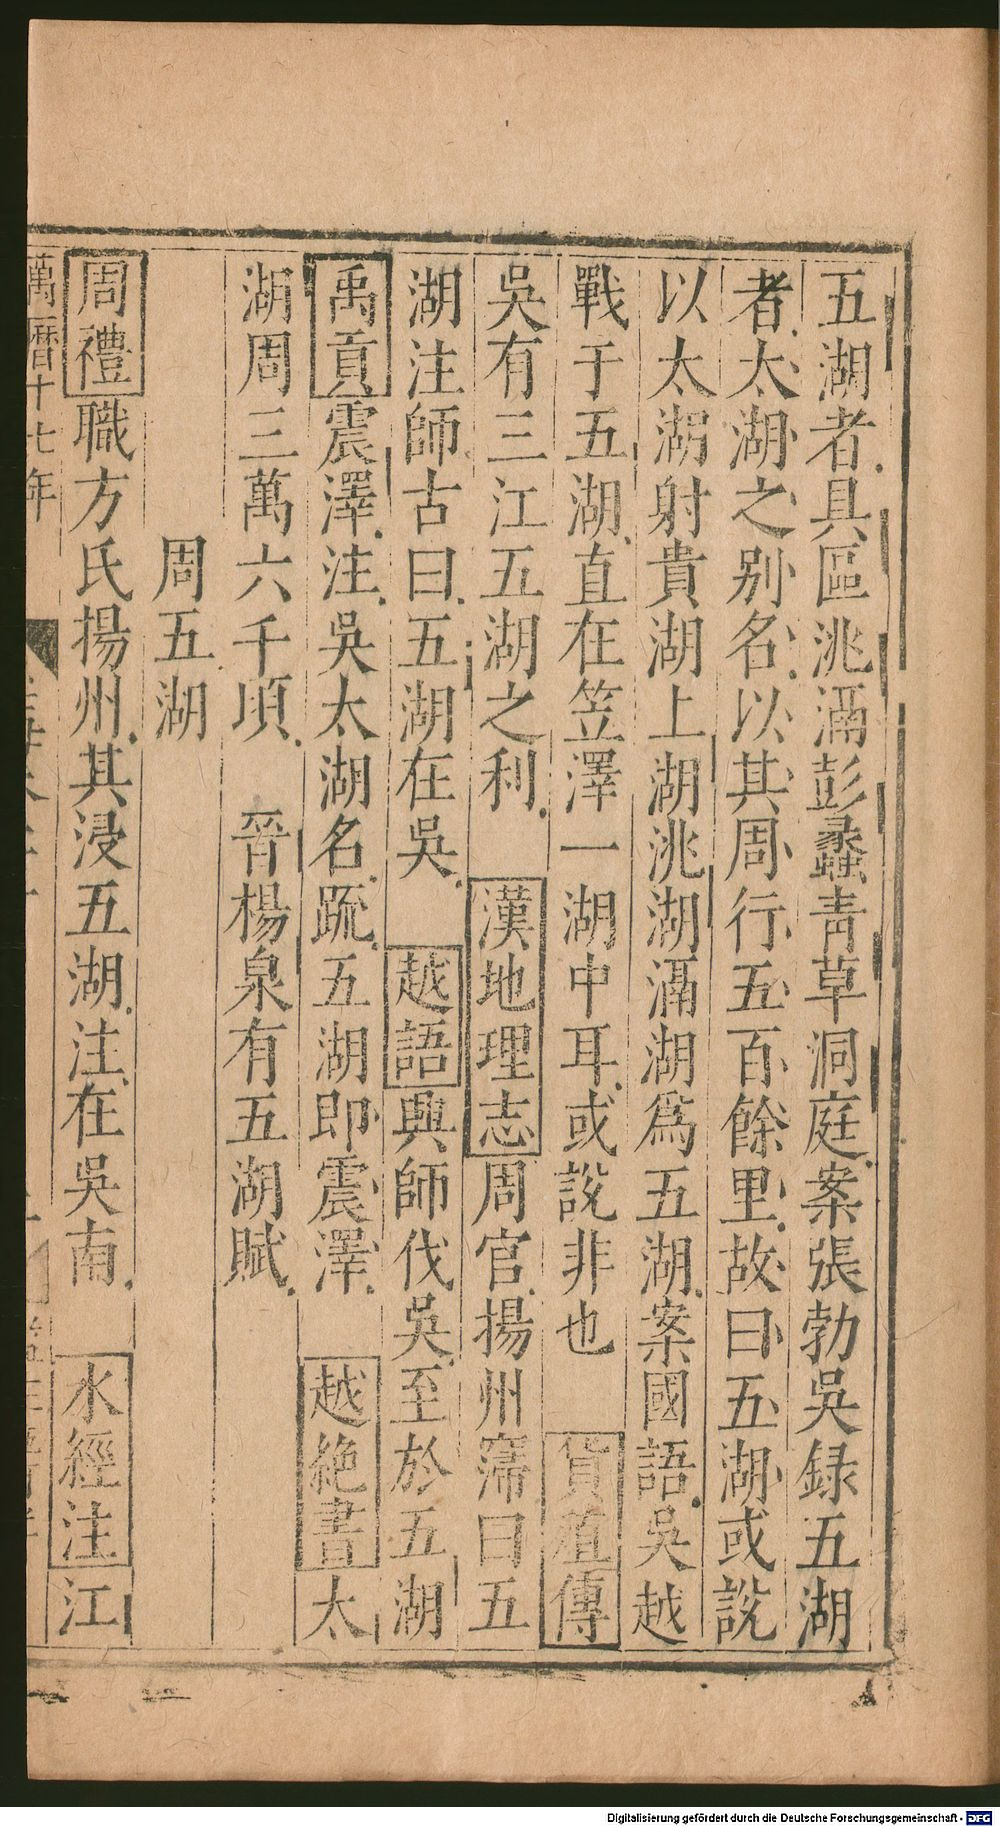 五湖者具區洮滆彭蠡青草洞庭案張勃吳録五湖
者太湖之别名以其周行五百餘里故曰五湖或說
以太湖射貴湖上湖洮湖滆湖爲五湖案國語吳越
戰于五湖直在笠澤一湖中耳或說非也　貨殖傳
吳有三江五湖之利　漢地理志周官揚州䆮曰五
湖注師古曰五湖在吳　越語興師伐吳至於五湖
禹貢震澤注吳太湖名疏五湖即震澤　越絶書太
湖周三萬六千頃　晉楊泉有五湖賦
周五湖
周禮職方氏揚州其浸五湖注在吳南　水經注江
萬曆十七年
Digitalisierung gefördert durch die Deutsche Forschungsgemeinschaft - DFG